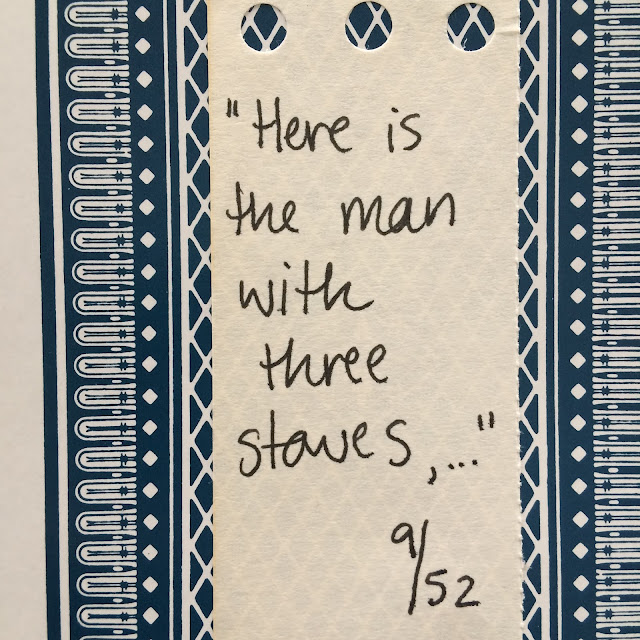 "Here is
the man
with
three
staves,..."
9/52